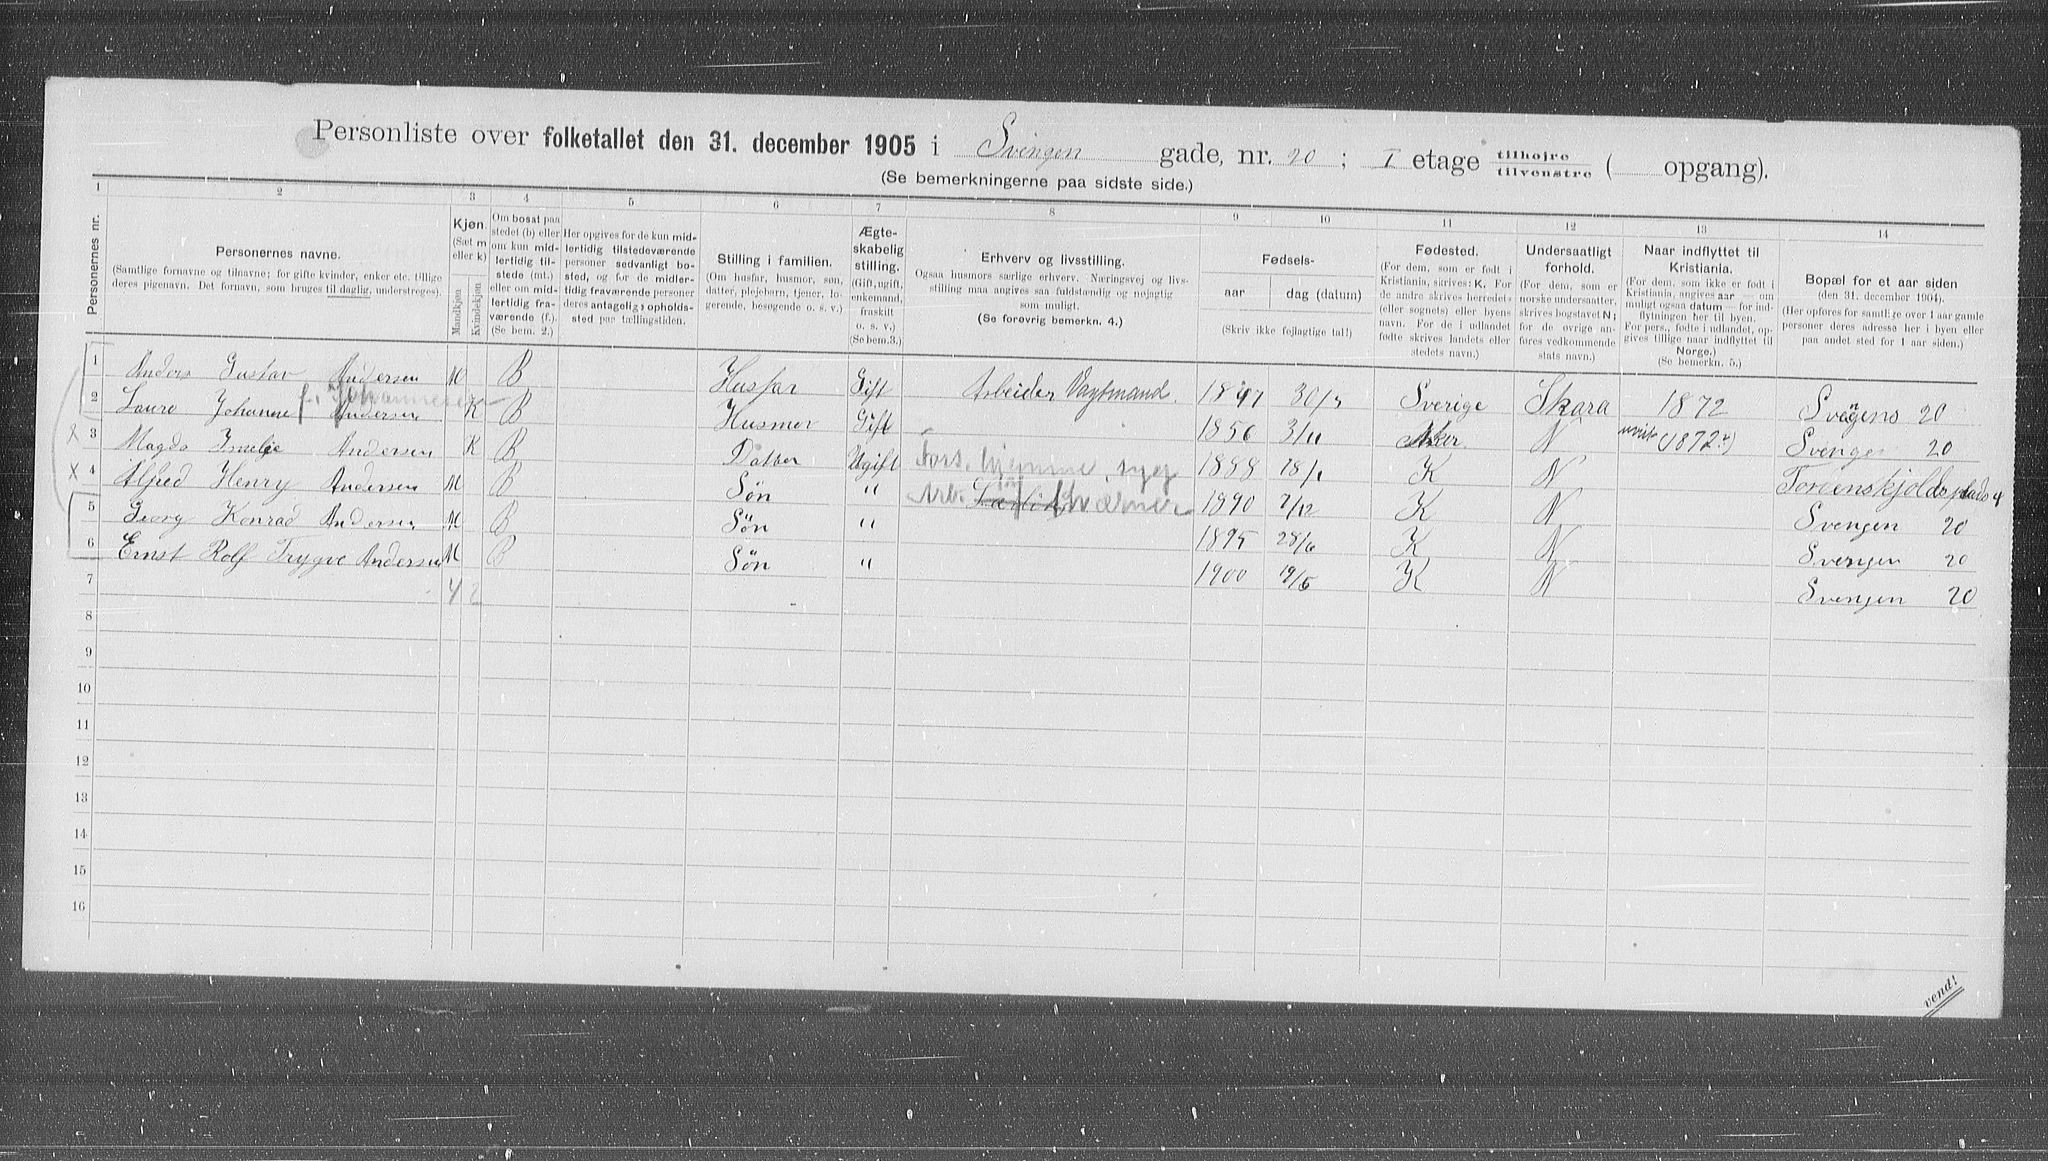 Personliste over folketallet den 31. december 1905 i Svingen gade, nr. 20 ; I etage tilhøjre tilvenstre ( opgang).
(Se bemerkningerne paa sidste side.)
1 2 3 4 5 6 7 8 9 10 11 12 13 14
Personernes nr.
Personernes navne.
(Samtlige fornavne og tilnavne; for gifte kvinder, enker etc. tillige deres pigenavn. Det fornavn, som bruges til daglig, understreges).
Kjøn.
(Sæt m eller k)
Mandkjøn
Kvindekjøn
Om bosat paa stedet (b) eller om kun midlertidig tilstede (mt.) eller om midlertidig fraværende (f.). (Se bem. 2.)
Her opgives for de kun midlertidig tilstedeværende personer sedvanligt bosted, og for de midlertidig fraværende personer deres antagelige opholdssted paa tællingstiden.
Stilling i familien.
(Om husfar, husmor, søn, datter, plejebarn, tjener, logerende, besøgende o. s. v.)
Ægteskabelig stilling.
(Gift, ugift, enkemand, fraskilt o. s. v.)
(Se bem.3.)
Erhverv og livsstilling.
Ogsaa husmors særlige erhverv. Næringsvej og livsstilling maa angives saa fuldstændig og nøjagtig som muligt.
(Se forøvrig bemerkn. 4.)
Fødsels-
aar
dag (datum)
(Skriv ikke fejlagtige tal!)
Fødested.
(For dem, som er født i Kristiania, skrives: K. For de andre skrives herredets (eller sognets) eller byens navn. For de i udlandet fødte skrives landets eller stedets navn.)
Undersaatligt forhold.
(For dem, som er norske undersaatter, skrives bogstavet N; for de øvrige anføres vedkommende stats navn.)
Naar indflyttet til Kristiania.
(For dem, som ikke er født i Kristiania, angives aar — om muligt ogsaa datum — for indflytningen her til byen. For pers., fødte i udlandet, opgives tillige naar indflyttet til Norge.)
(Se bemerkn. 5.)
Bopæl for et aar siden
(den 31. december 1904).
(Her opføres for samtlige over 1 aar gamle personer deres adresse her i byen eller paa andet sted for 1 aar siden.)
1 Anders Gustav Andersen M B Husfar Gift Arbeider Vagtmand. 1847 Sverige Skara 1872 Svingens 20
f. Johannesen
2 Laura Johanne Andersen K B Husmor Gift 1856 3/11 Aker N 1872 Svengen 20
3 Magda Andersen K B Datter Ugift Fors. hjemme, syg 1888 18/1 K N Tordenskjoldsplads 4
4 Alfred Henry Andersen M B Søn " Arb. 1890 7/12 K N Svengen 20
5 Georg Konrad Andersen M B Søn " 1895 28/6 K N Svengen 20
6 Ernst Rolf Trygve Andersen M B Søn " 1900 19/5 K N Svengen 20
7 4 2
8
9
10
11
12
13
14
15
16
vend!